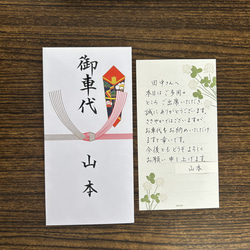 御車代
山本
田中さんへ
本日はご多用の
ところ ご出席いただき
誠にありがとうございます。
ささやかではございますが
お車代をお納めいただけ
ますと幸いです。
今後ともどうぞよろしく
お願い申し上げます。
山本